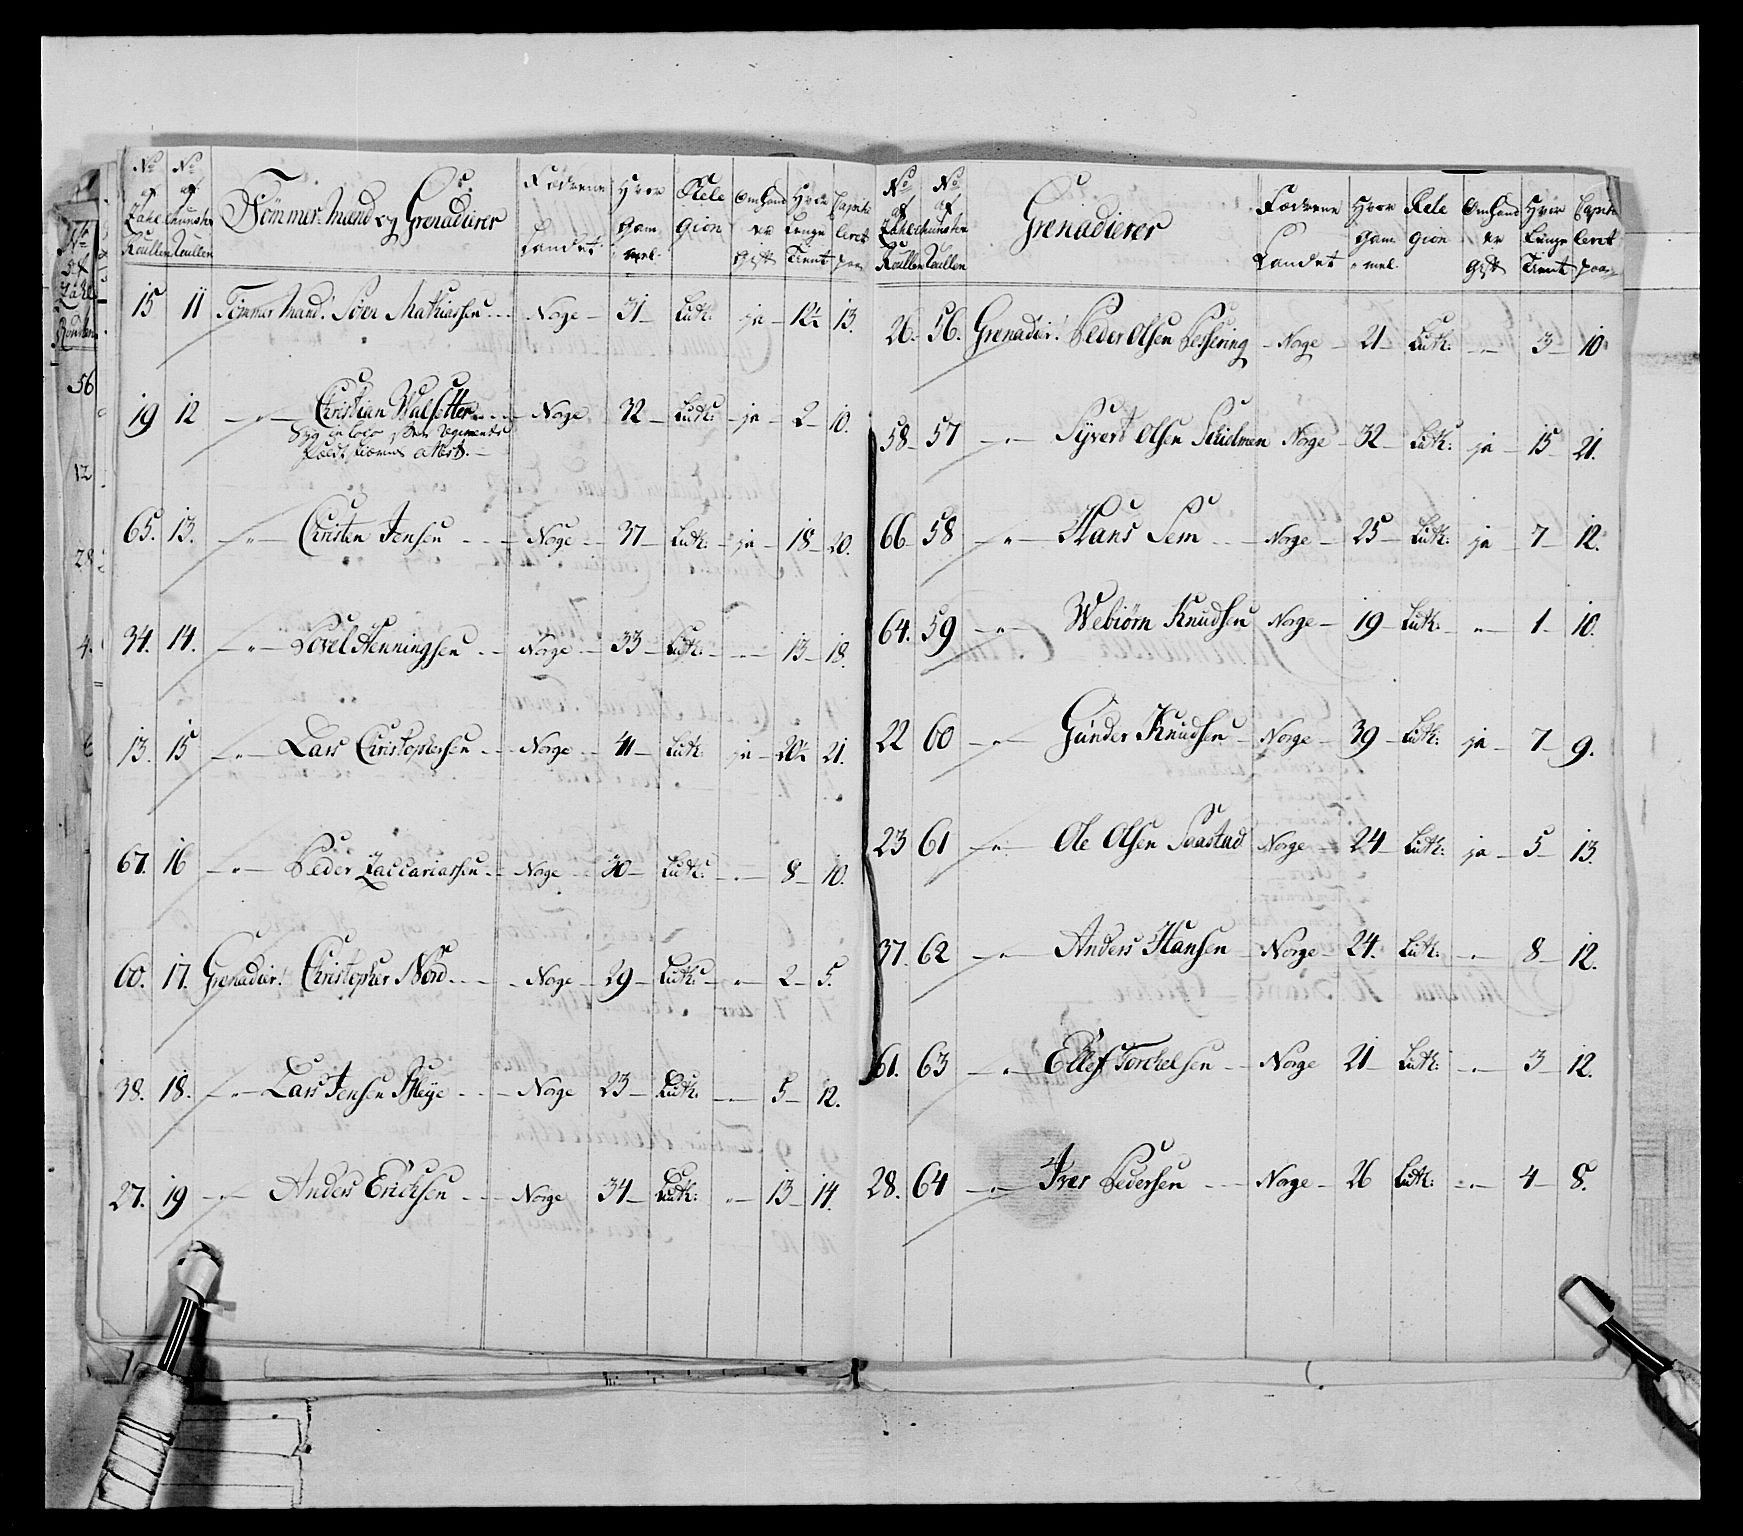 No af Zahl Roullen | No af munster Roullen | Tömmer Mænd og Grenadierer | Födrene Landet | Hvor Gam mel | Rele Gion | Om hand er Gift | Hvor Længe Tient | Capitu leret paa
15 11 Tömmer Mand: Sören Mathiassen Norge 31 Luth: ja 12½ 13.
19 12 — " — Christian Walsetter Norge 32 Luth: ja 2 10.
65. 13. — " — Christen Jensen Norge 37 Luth: ja 18 20.
34. 14. — " — Povel Henningsen Norge 33 Luth: — 13 18.
13. 15 — " — Lars Christophersen Norge 41 Luth: ja 20½ 21.
67. 16 — " — Peder Zaccariassen Norge 30 Luth: — 8 10.
60. 17. Grenadier: Christopher Nord Norge 29 Luth: — 2 5.
38. 18. — " — Lars Jensen Norge 23 Luth: — 5 12.
27. 19 — " — Anders Erichsen Norge 34 Luth: — 13 14.
56
12
28
4.
No af Zahl Roullen | No af munster Roullen | Grenadierer | Födrene Landet | Hvor Gam mel | Rele Gion | Om hand er Gift | Hvor Længe Tient | Capitu leret paa
26. 56. Grenadier: Peder Olsen Norge 21 Luth: — 3 10
58 57 — " — Syvert Olsen Norge 32 Luth: ja 15 21.
66 58 — " — Hans Sem Norge 25 Luth: ja 7 12.
64. 59 — " — Webiörn Knudsen Norge 19 Luth: — 1 10.
22 60 — " — Gunder Knudsen Norge 39 Luth: ja 7 9.
23 61 — " — Ole Olsen Norge 24 Luth: ja 5 13.
37. 62 — " — Anders Hansen Norge 24. Luth: — 8 12.
61. 63 — " — Ellef Torchelsen Norge 21 Luth: — 3 12.
28. 64 — " — Iver Pedersen Norge 26 Luth: — 4 8.